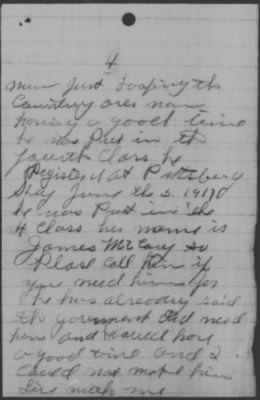 4
men just loafing the
Country over now
having a good time
he was Put in th
fourth Class he
Registerd at Pittsberg
June the 5. 1917
he was Put in the
4 Class his name is
James McCary so
Please Call him if
you need him for
he has already said
th goverment did need
him and could have
a good time and I
Could not make him
live with me